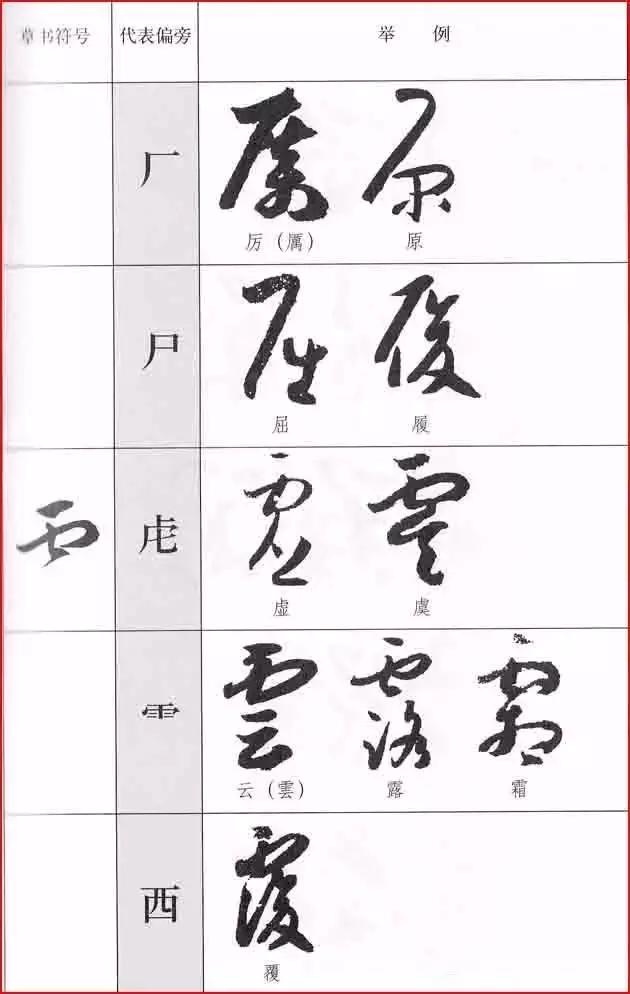 草书符号 代表偏旁 举例
厂
厉（厲） 原
尸
屈 履
虍
虚 虞
雨
云（雲） 露 霜
西
覆